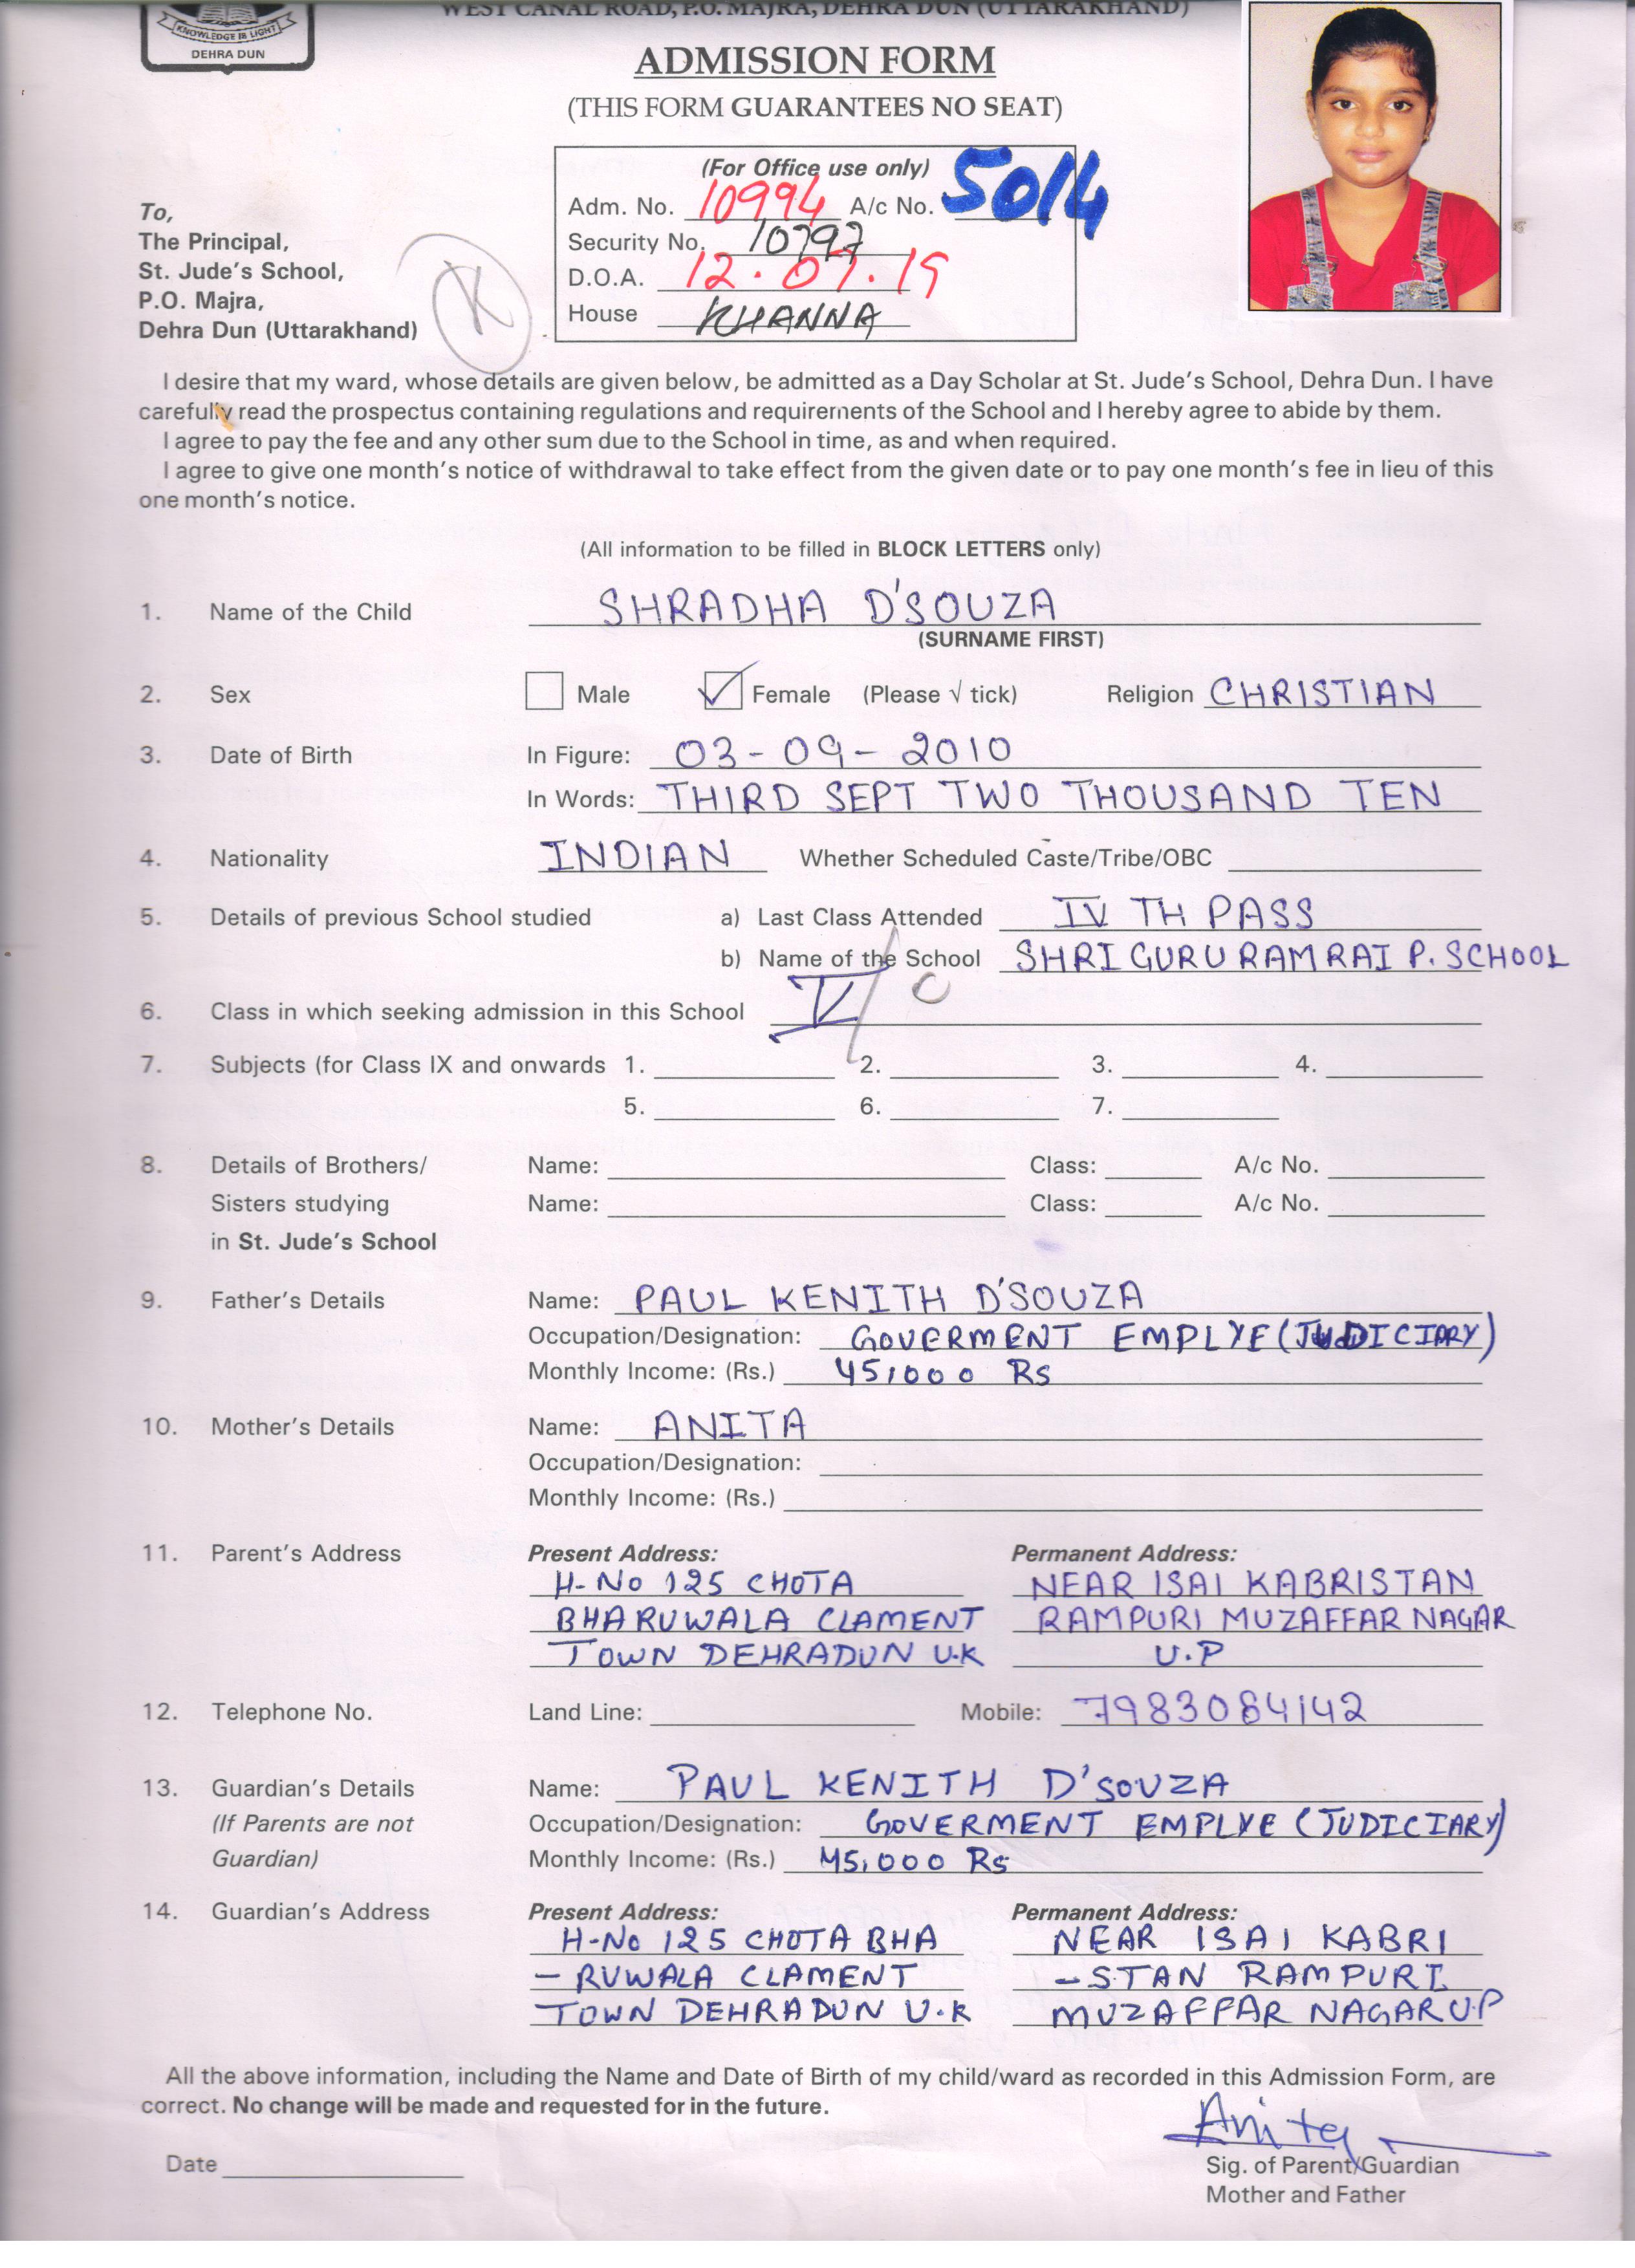 WEST CANAL ROAD, P.O. MAJRA, DEHRA DUN (UTTARAKHAND)
KNOWLEDGE IS LIGHT
DEHRA DUN
ADMISSION FORM
(THIS FORM GUARANTEES NO SEAT)
(For Office use only)
Adm. No. 10994 A/c No. 5014
Security No. 10797
D.O.A. 12.07.19
House KHANNA
To,
The Principal,
St. Jude's School,
P.O. Majra,
Dehra Dun (Uttarakhand)
K
I desire that my ward, whose details are given below, be admitted as a Day Scholar at St. Jude's School, Dehra Dun. I have
carefully read the prospectus containing regulations and requirements of the School and I hereby agree to abide by them.
I agree to pay the fee and any other sum due to the School in time, as and when required.
I agree to give one month's notice of withdrawal to take effect from the given date or to pay one month's fee in lieu of this
one month's notice.
(All information to be filled in BLOCK LETTERS only)
1. Name of the Child SHRADHA D'SOUZA
(SURNAME FIRST)
2. Sex Male Female (Please √ tick) Religion CHRISTIAN
3. Date of Birth In Figure: 03-09-2010
In Words: THIRD SEPT TWO THOUSAND TEN
4. Nationality INDIAN Whether Scheduled Caste/Tribe/OBC
5. Details of previous School studied a) Last Class Attended IV TH PASS
b) Name of the School SHRI GURU RAM RAI P. SCHOOL
6. Class in which seeking admission in this School V/C
7. Subjects (for Class IX and onwards 1. 2. 3. 4.
5. 6. 7.
8. Details of Brothers/ Name: Class: A/c No.
Sisters studying Name: Class: A/c No.
in St. Jude's School
9. Father's Details Name: PAUL KENITH D'SOUZA
Occupation/Designation: GOVERMENT EMPLYE (JUDICIARY)
Monthly Income: (Rs.) 45,000 Rs
10. Mother's Details Name: ANITA
Occupation/Designation:
Monthly Income: (Rs.)
11. Parent's Address Present Address: Permanent Address:
H-No 125 CHOTA NEAR ISAI KABRISTAN
BHARUWALA CLAMENT RAMPURI MUZAFFAR NAGAR
TOWN DEHRADUN U.K U.P
12. Telephone No. Land Line: Mobile: 7983084142
13. Guardian's Details Name: PAUL KENITH D'SOUZA
(If Parents are not Occupation/Designation: GOVERMENT EMPLYE (JUDICIARY)
Guardian) Monthly Income: (Rs.) 45,000 Rs
14. Guardian's Address Present Address: Permanent Address:
H-No 125 CHOTA BHA NEAR ISAI KABRI
- RUWALA CLAMENT - STAN RAMPURI
TOWN DEHRADUN U.K MUZAFFAR NAGAR U.P
All the above information, including the Name and Date of Birth of my child/ward as recorded in this Admission Form, are
correct. No change will be made and requested for in the future.
Anita
Date Sig. of Parent/Guardian
Mother and Father